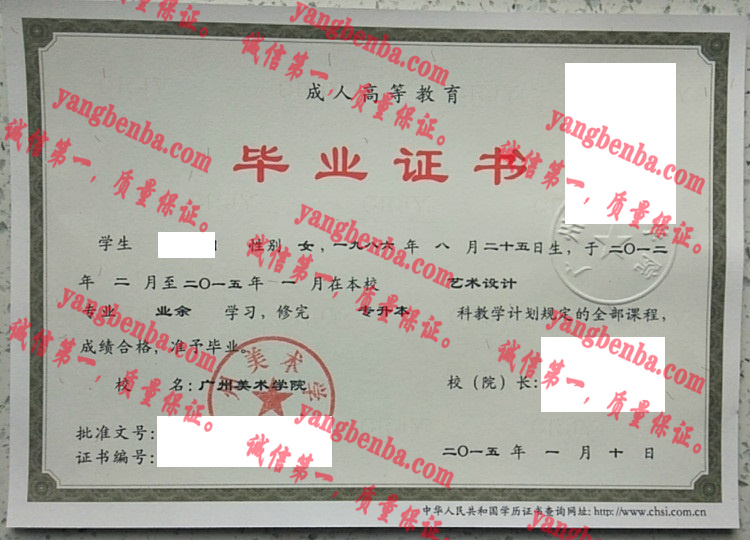 成人高等教育
毕业证书
学生 性别 女，一九八六年 八 月二十五日生，于二〇一二
年 二 月至二〇一五年 一 月在本校 艺术设计
专业 业余 学习，修完 专升本 科教学计划规定的全部课程，
成绩合格，准予毕业。
校 名：广州美术学院
校（院）长：
批准文号：
证书编号：
二〇一五年 一 月 十 日
中华人民共和国学历证书查询网址：http://www.chsi.com.cn
广州美术学院
yangbenba.com
诚信第一，质量保证。
yangbenba.com
诚信第一，质量保证。
yangbenba.com
诚信第一，质量保证。
yangbenba.com
诚信第一，质量保证。
yangbenba.com
诚信第一，质量保证。
yangbenba.com
诚信第一，质量保证。
yangbenba.com
诚信第一，质量保证。
yangbenba.com
诚信第一，质量保证。